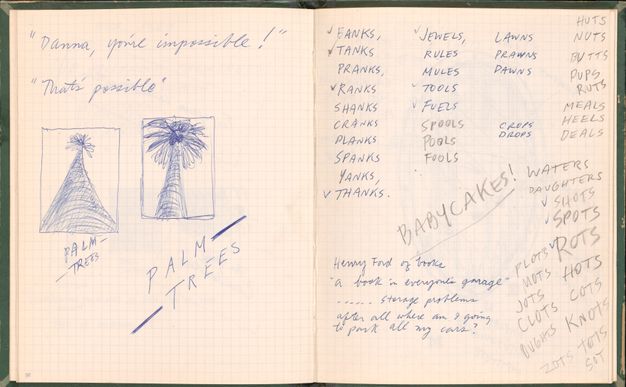 "Danna, you're impossible!"
"That's possible"
PALM-
-TREES
PALM-
-TREES
EANKS,
TANKS
PRANKS,
RANKS
SHANKS
CRANKS
PLANKS
SPANKS
YANKS,
THANKS.
JEWELS,
RULES
MULES
TOOLS
FUELS
SPOOLS
POOLS
FOOLS
LAWNS
PRAWNS
DAWNS
CROPS
DROPS
HUTS
NUTS
BUTTS
PUPS
RUTS
MEALS
HEELS
DEALS
BABYCAKES!
WATERS
DAUGHTERS
SHOTS
SPOTS
PLOTS ROTS
HOTS
JOTS COTS
CLOTS KNOTS
TOTS
SOT
Henry Ford of books
"a book in everyone's garage"
...... storage problems
after all where am I going
to park all my cars?